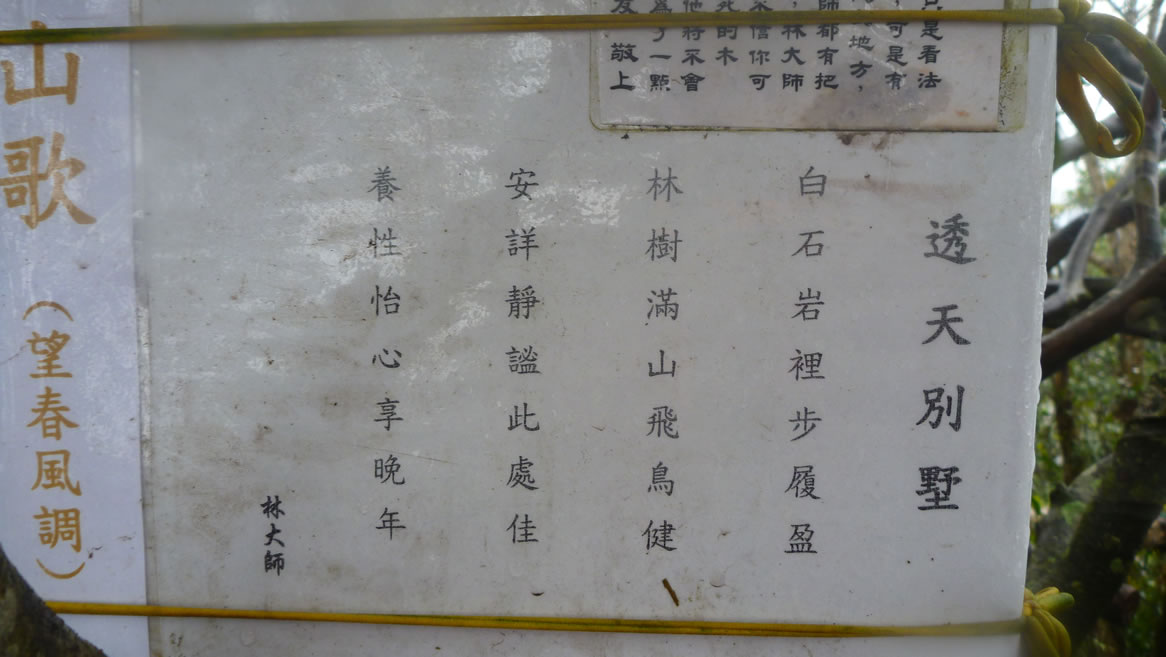 只是看法
，可是有
地方，
師都有把
，林大師
不信你可
死的木
他將不會
為了一點
友敬上
透天別墅
白石岩裡步履盈
林樹滿山飛鳥健
安詳靜謐此處佳
養性怡心享晚年
林大師
山歌（望春風調）